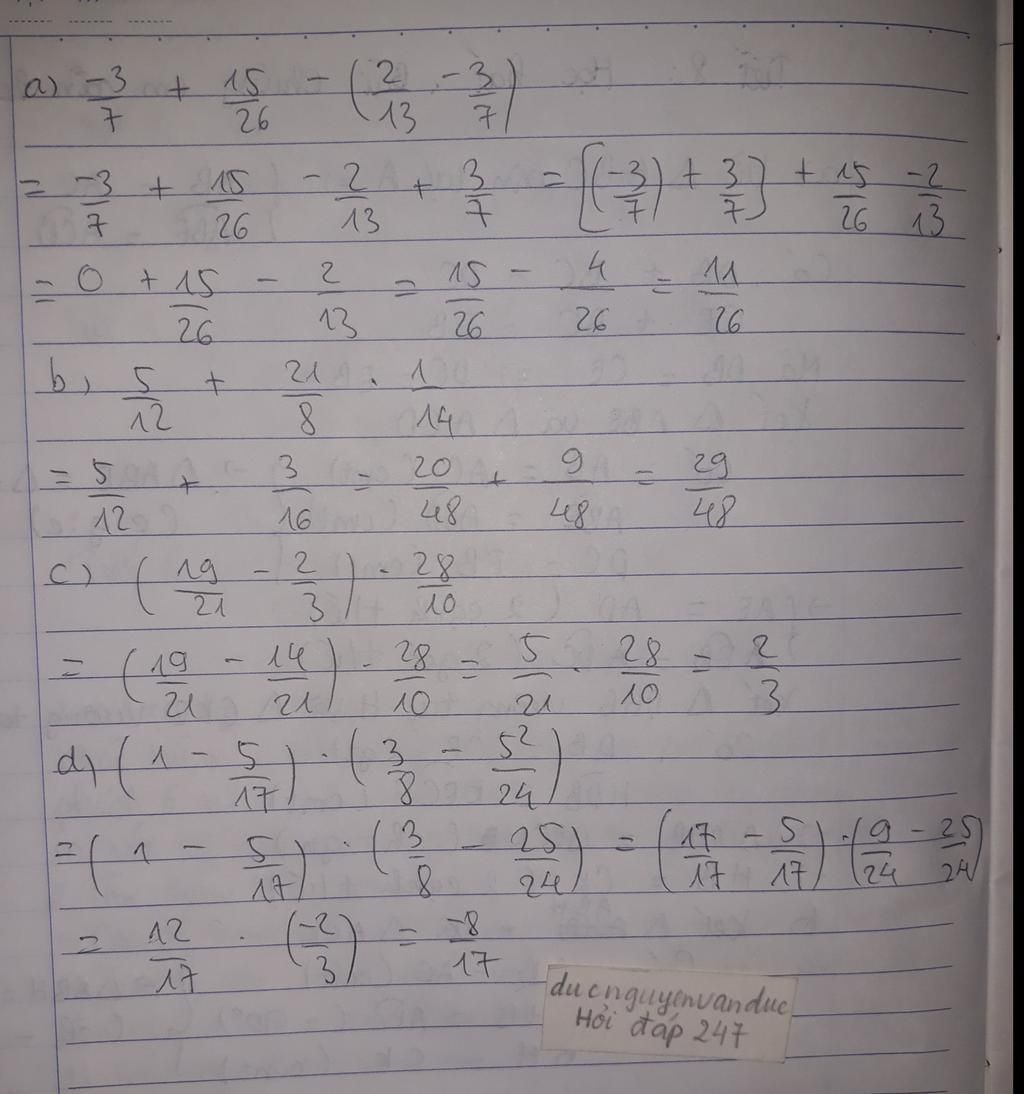 a) -3/7 + 15/26 - (2/13 - 3/7)
= -3/7 + 15/26 - 2/13 + 3/7 = [(-3/7) + 3/7] + 15/26 - 2/13
= 0 + 15/26 - 2/13 = 15/26 - 4/26 = 11/26
b) 5/12 + 21/8 . 1/14
= 5/12 + 3/16 = 20/48 + 9/48 = 29/48
c) (19/21 - 2/3) . 28/10
= (19/21 - 14/21) . 28/10 = 5/21 . 28/10 = 2/3
d) (1 - 5/17) . (3/8 - 5²/24)
= (1 - 5/17) . (3/8 - 25/24) = (17/17 - 5/17) . (9/24 - 25/24)
= 12/17 . (-2/3) = -8/17
ducnguyenvanduc
Hỏi đáp 247